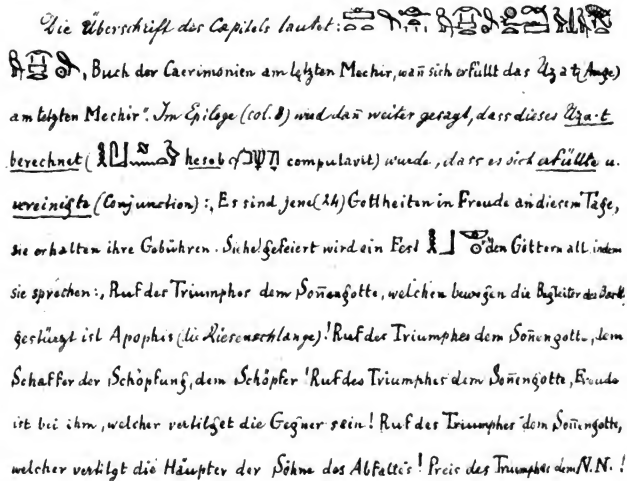 Die Überschrift des Capitels lautet:
„Buch der Caerimonien am letzten Mechir, wañ sich erfüllt das Uza-t (Auge)
am letzten Mechir“. Im Epiloge (col. 8) wird dañ weiter gesagt, dass dieses Uza-t
berechnet ( hesob computavit) wurde, dass es sich erfüllte u.
vereinigte (Conjunction): „Es sind jene (24) Gottheiten in Freude an diesem Tage,
sie erhalten ihre Gebühren. Siehe! gefeiert wird ein Fest den Göttern all, indem
sie sprechen: „Ruf des Triumphes dem Soñengotte, welchen bewegen die Begleiter der Bark,
gestürzt ist Apophis (die Riesenschlange)! Ruf des Triumphes dem Soñengotte, dem
Schaffer der Schöpfung, dem Schöpfer! Ruf des Triumphes dem Soñengotte, Freude
ist bei ihm, welcher vertilget die Gegner sein! Ruf des Triumphes dem Soñengotte,
welcher vertilgt die Häupter der Söhne des Abfalles! Preis des Triumphes dem N.N.!